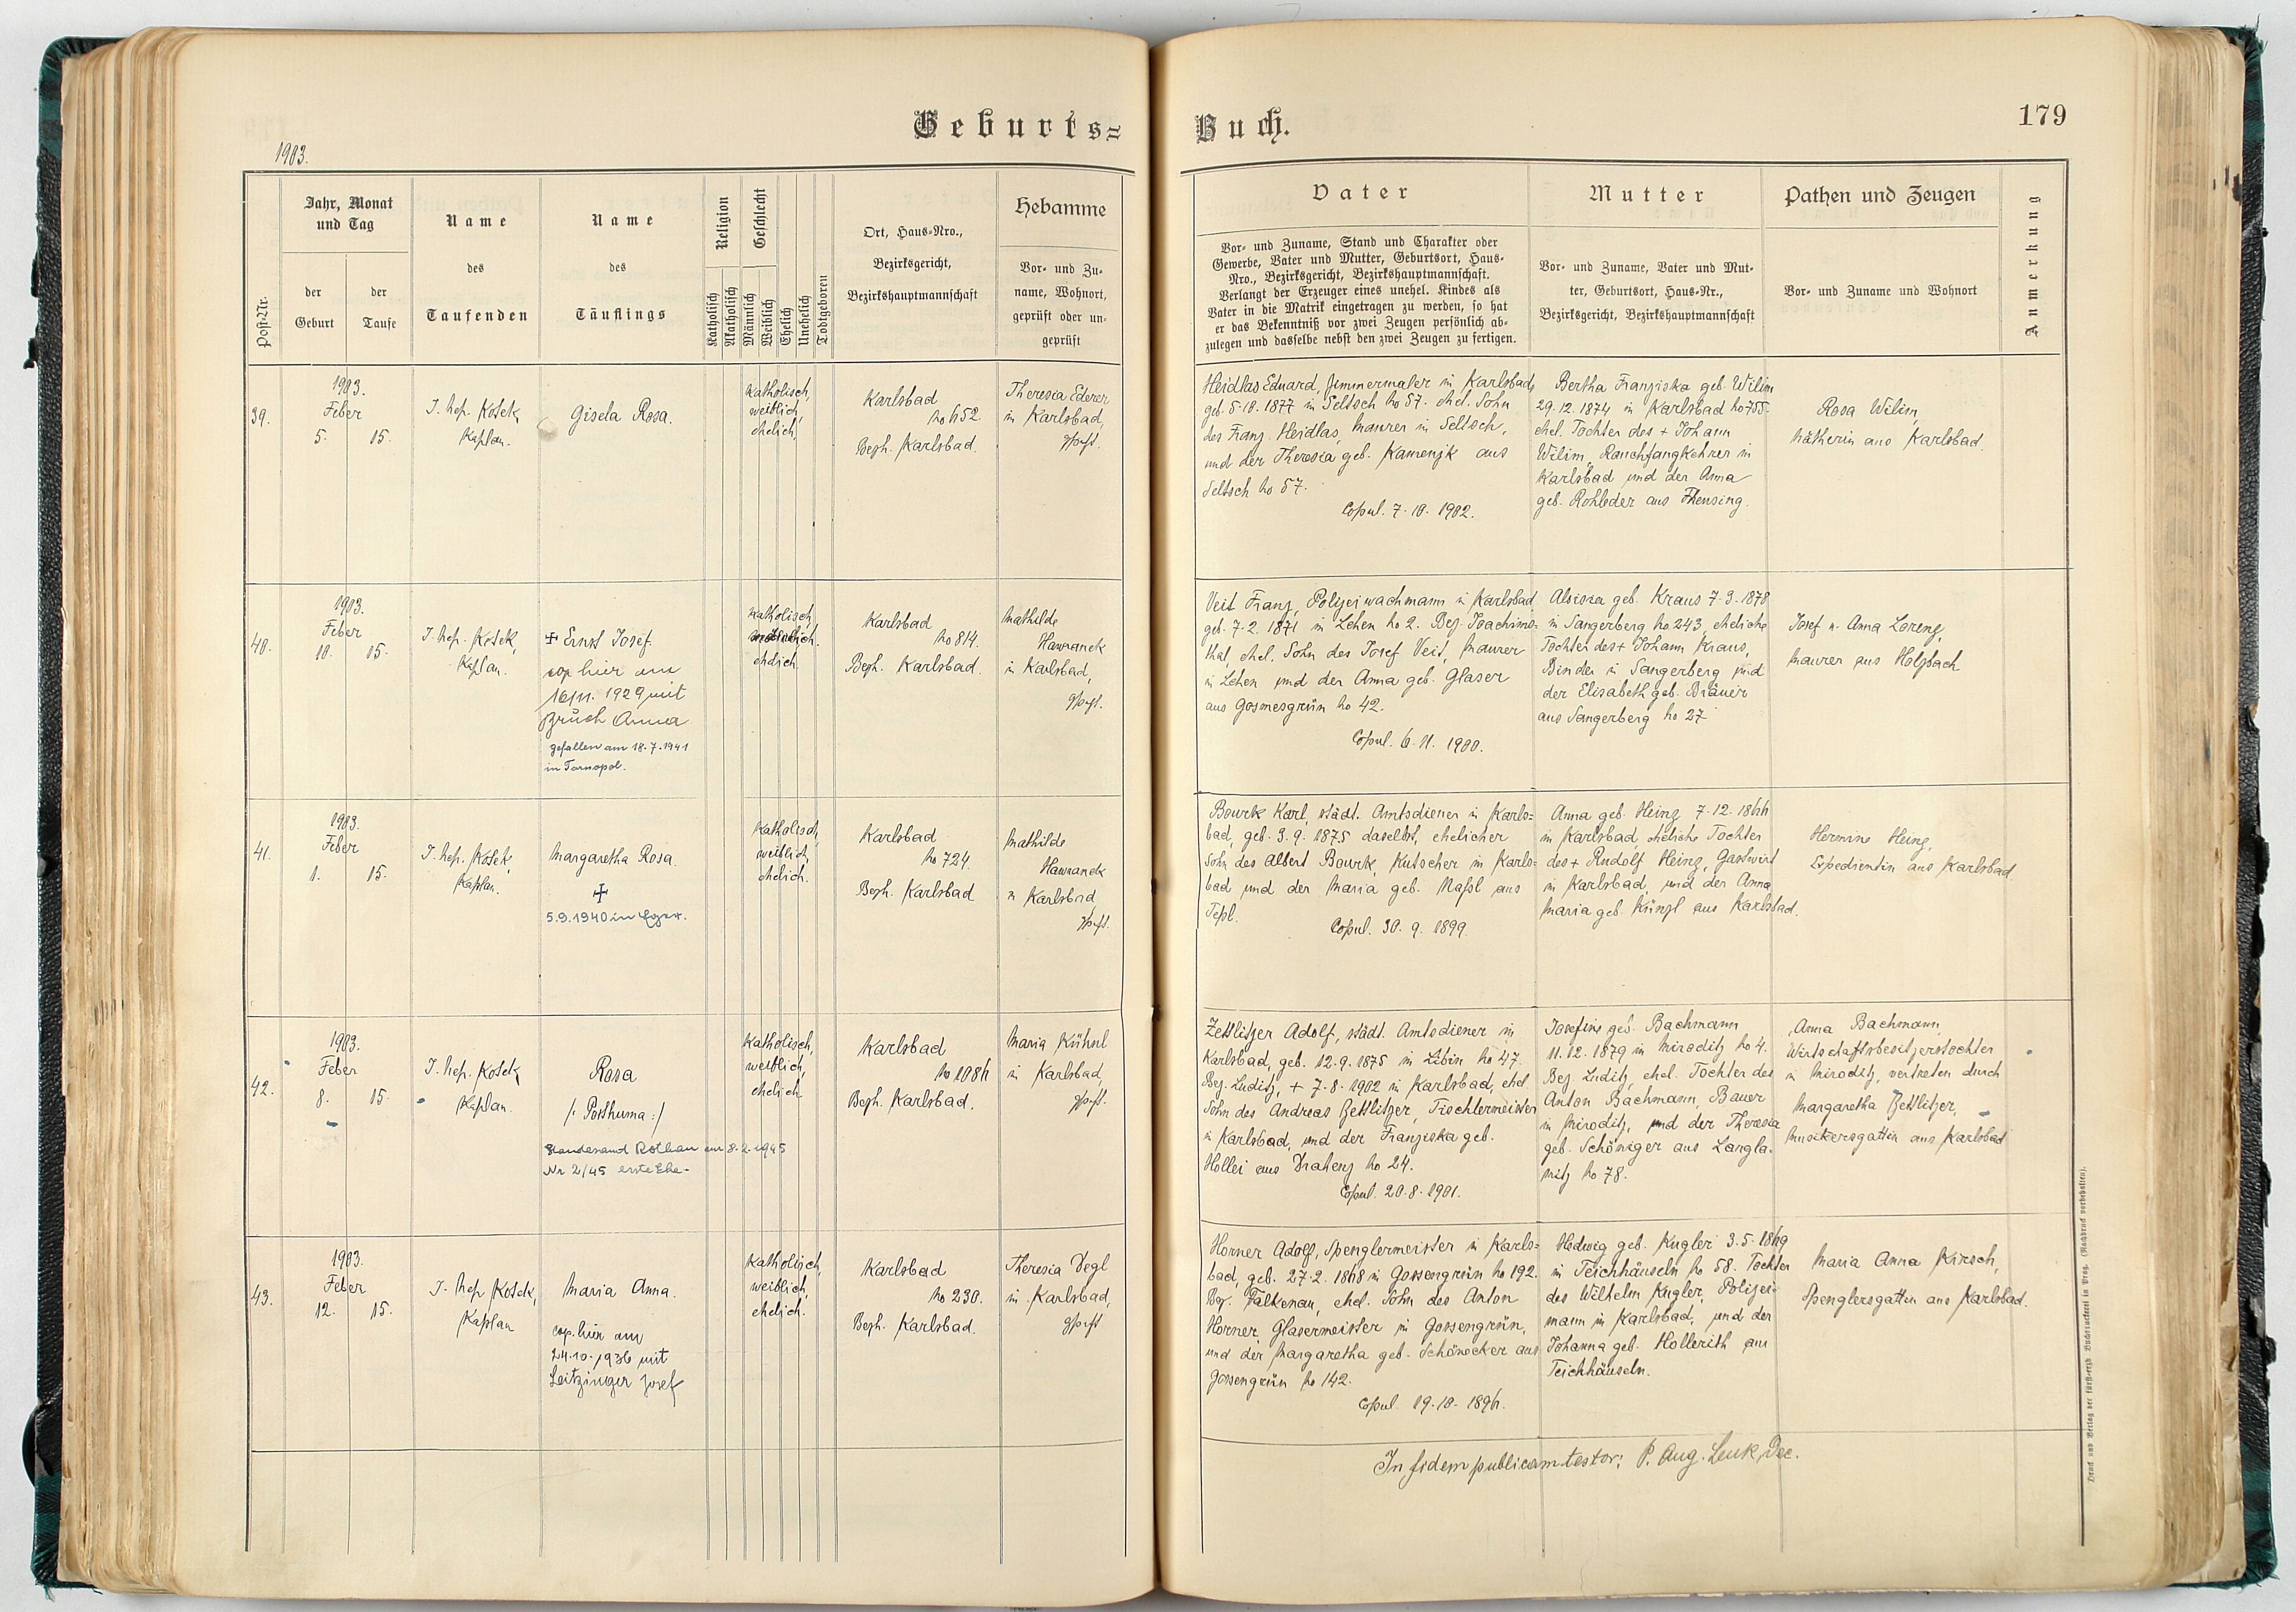 Geburts=
Buch.
179
1903.
Post-Nr.
Jahr, Monat
und Tag
der
Geburt
der
Taufe
Name
des
Taufenden
Name
des
Täuflings
Religion
Katholisch
Akatholisch
Geschlecht
Männlich
Weiblich
Ehelich
Unehelich
Todtgeboren
Ort, Haus=Nro.,
Bezirksgericht,
Bezirkshauptmannschaft
Hebamme
Vor= und Zu=
name, Wohnort,
geprüft oder un=
geprüft
Vater
Vor= und Zuname, Stand und Charakter oder
Gewerbe, Vater und Mutter, Geburtsort, Haus=
Nro., Bezirksgericht, Bezirkshauptmannschaft.
Verlangt der Erzeuger eines unehel. Kindes als
Vater in die Matrik eingetragen zu werden, so hat
er das Bekenntniß vor zwei Zeugen persönlich ab=
zulegen und dasselbe nebst den zwei Zeugen zu fertigen.
Mutter
Vor= und Zuname, Vater und Mut=
ter, Geburtsort, Haus=Nr.,
Bezirksgericht, Bezirkshauptmannschaft
Pathen und Zeugen
Vor= und Zuname und Wohnort
Anmerkung
39.
1903.
Feber
5. 15.
J. Nep. Košek,
Kaplan.
Gisela Rosa.
katholisch,
weiblich,
ehelich.
Karlsbad
No 652
Bezh. Karlsbad.
Theresia Ederer
in Karlsbad,
gepft.
Heidlas Eduard, Zimmermaler in Karlsbad,
geb. 5.10.1877 in Seltsch No 57. ehel. Sohn
des Franz Heidlas, Maurer in Seltsch,
und der Theresia geb. Kamenjk aus
Seltsch No 57.
Copul. 7.10.1902.
Bertha Franziska geb. Wilim
29.12.1874 in Karlsbad No 755.
ehel. Tochter des + Johann
Wilim, Rauchfangkehrer in
Karlsbad und der Anna
geb. Rohleder aus Theusing.
Rosa Wilim,
Nätherin aus Karlsbad.
40.
1903.
Feber
10. 15.
J. Nep. Košek,
Kaplan.
+ Ernst Josef.
cop hier am
16/11. 1929 mit
Bruch Anna
gefallen am 18.7.1941
in Tarnopol.
katholisch,
männlich.
ehelich.
Karlsbad
No 814.
Bezh. Karlsbad.
Mathilde
Hawranek
in Karlsbad,
gepft.
Veit Franz, Polizeiwachmann in Karlsbad
geb. 7.2.1871 in Lehen No 2. Bez. Joachims=
thal, ehel. Sohn des Josef Veit, Maurer
in Lehen und der Anna geb. Glaser
aus Gosmesgrün No 42.
Copul. 6.11.1900.
Aloisia geb. Kraus 7.3.1878
in Sangerberg No 243, eheliche
Tochter des + Johann Kraus,
Binder in Sangerberg und
der Elisabeth geb. Bräuer
aus Sangerberg No 27
Josef u. Anna Lorenz,
Maurer aus Holzbach
41.
1903.
Feber
1. 15.
J. Nep. Košek,
Kaplan.
Margaretha Rosa.
+
5.9.1940 in Eger.
katholisch,
weiblich,
ehelich.
Karlsbad
No 724.
Bezh. Karlsbad
Mathilde
Hawranek
in Karlsbad,
gepft.
Bourk Karl, städt. Amtsdiener in Karls=
bad, geb. 3.9.1875 daselbst, ehelicher
Sohn des Albert Bourk, Kutscher in Karls=
bad und der Maria geb. Naßl aus
Tepl.
Copul. 30.9.1899.
Anna geb. Heinz 7.12.1866
in Karlsbad, eheliche Tochter
des + Rudolf Heinz, Gastwirt
in Karlsbad, und der Anna
Maria geb. Künzl aus Karlsbad.
Hermine Heinz,
Expedientin aus Karlsbad.
42.
1903.
Feber
8. 15.
J. Nep. Košek,
Kaplan.
Rosa
/: Posthuma :/
Standesamt Rothau am 8.2.1945
Nr 2/45 erste Ehe.
katholisch,
weiblich,
ehelich.
Karlsbad
No 1086
Bezh. Karlsbad.
Maria Kühnl
in Karlsbad,
gepft.
Zettlitzer Adolf, städt. Amtsdiener in
Karlsbad, geb. 12.9.1875 in Libin No 47.
Bez. Luditz, + 7.8.1902 in Karlsbad, ehel.
Sohn des Andreas Zettlitzer, Tischlermeister
in Karlsbad, und der Franziska geb.
Hollei aus Drahenz No 24.
Copul. 20.8.1901.
Josefine geb. Bachmann
11.12.1879 in Miroditz No 4.
Bez. Luditz, ehel. Tochter des
Anton Bachmann, Bauer
in Miroditz, und der Theresia
geb. Schöniger aus Langla=
mitz No 78.
Anna Bachmann,
Wirtschaftsbesitzerstochter
in Miroditz, vertreten durch
Margaretha Zettlitzer,
Musikersgattin aus Karlsbad
43.
1903.
Feber
12. 15.
J. Nep. Košek,
Kaplan
Maria Anna.
cop. hier am
24.10.1936 mit
Leitzinger Josef
katholisch,
weiblich,
ehelich.
Karlsbad
No 230.
Bezh. Karlsbad.
Theresia Degl
in Karlsbad,
gepft.
Horner Adolf, Spenglermeister in Karls=
bad, geb. 27.2.1868 in Gossengrün No 192.
Bez. Falkenau, ehel. Sohn des Anton
Horner, Glasermeister in Gossengrün,
und der Margaretha geb. Schönecker aus
Gossengrün No 142.
Copul. 19.10.1896.
Hedwig geb. Kugler 3.5.1869
in Teichhäuseln No 58. Tochter
des Wilhelm Kugler, Polizei=
mann in Karlsbad, und der
Johanna geb. Hollerith aus
Teichhäuseln.
Maria Anna Kirsch,
Spenglersgattin aus Karlsbad.
In fidem publicam testor: P. Aug. Leuk, Dec.
Druck und Verlag der fürst-erzb. Buchdruckerei in Prag. (Nachdruck vorbehalten).